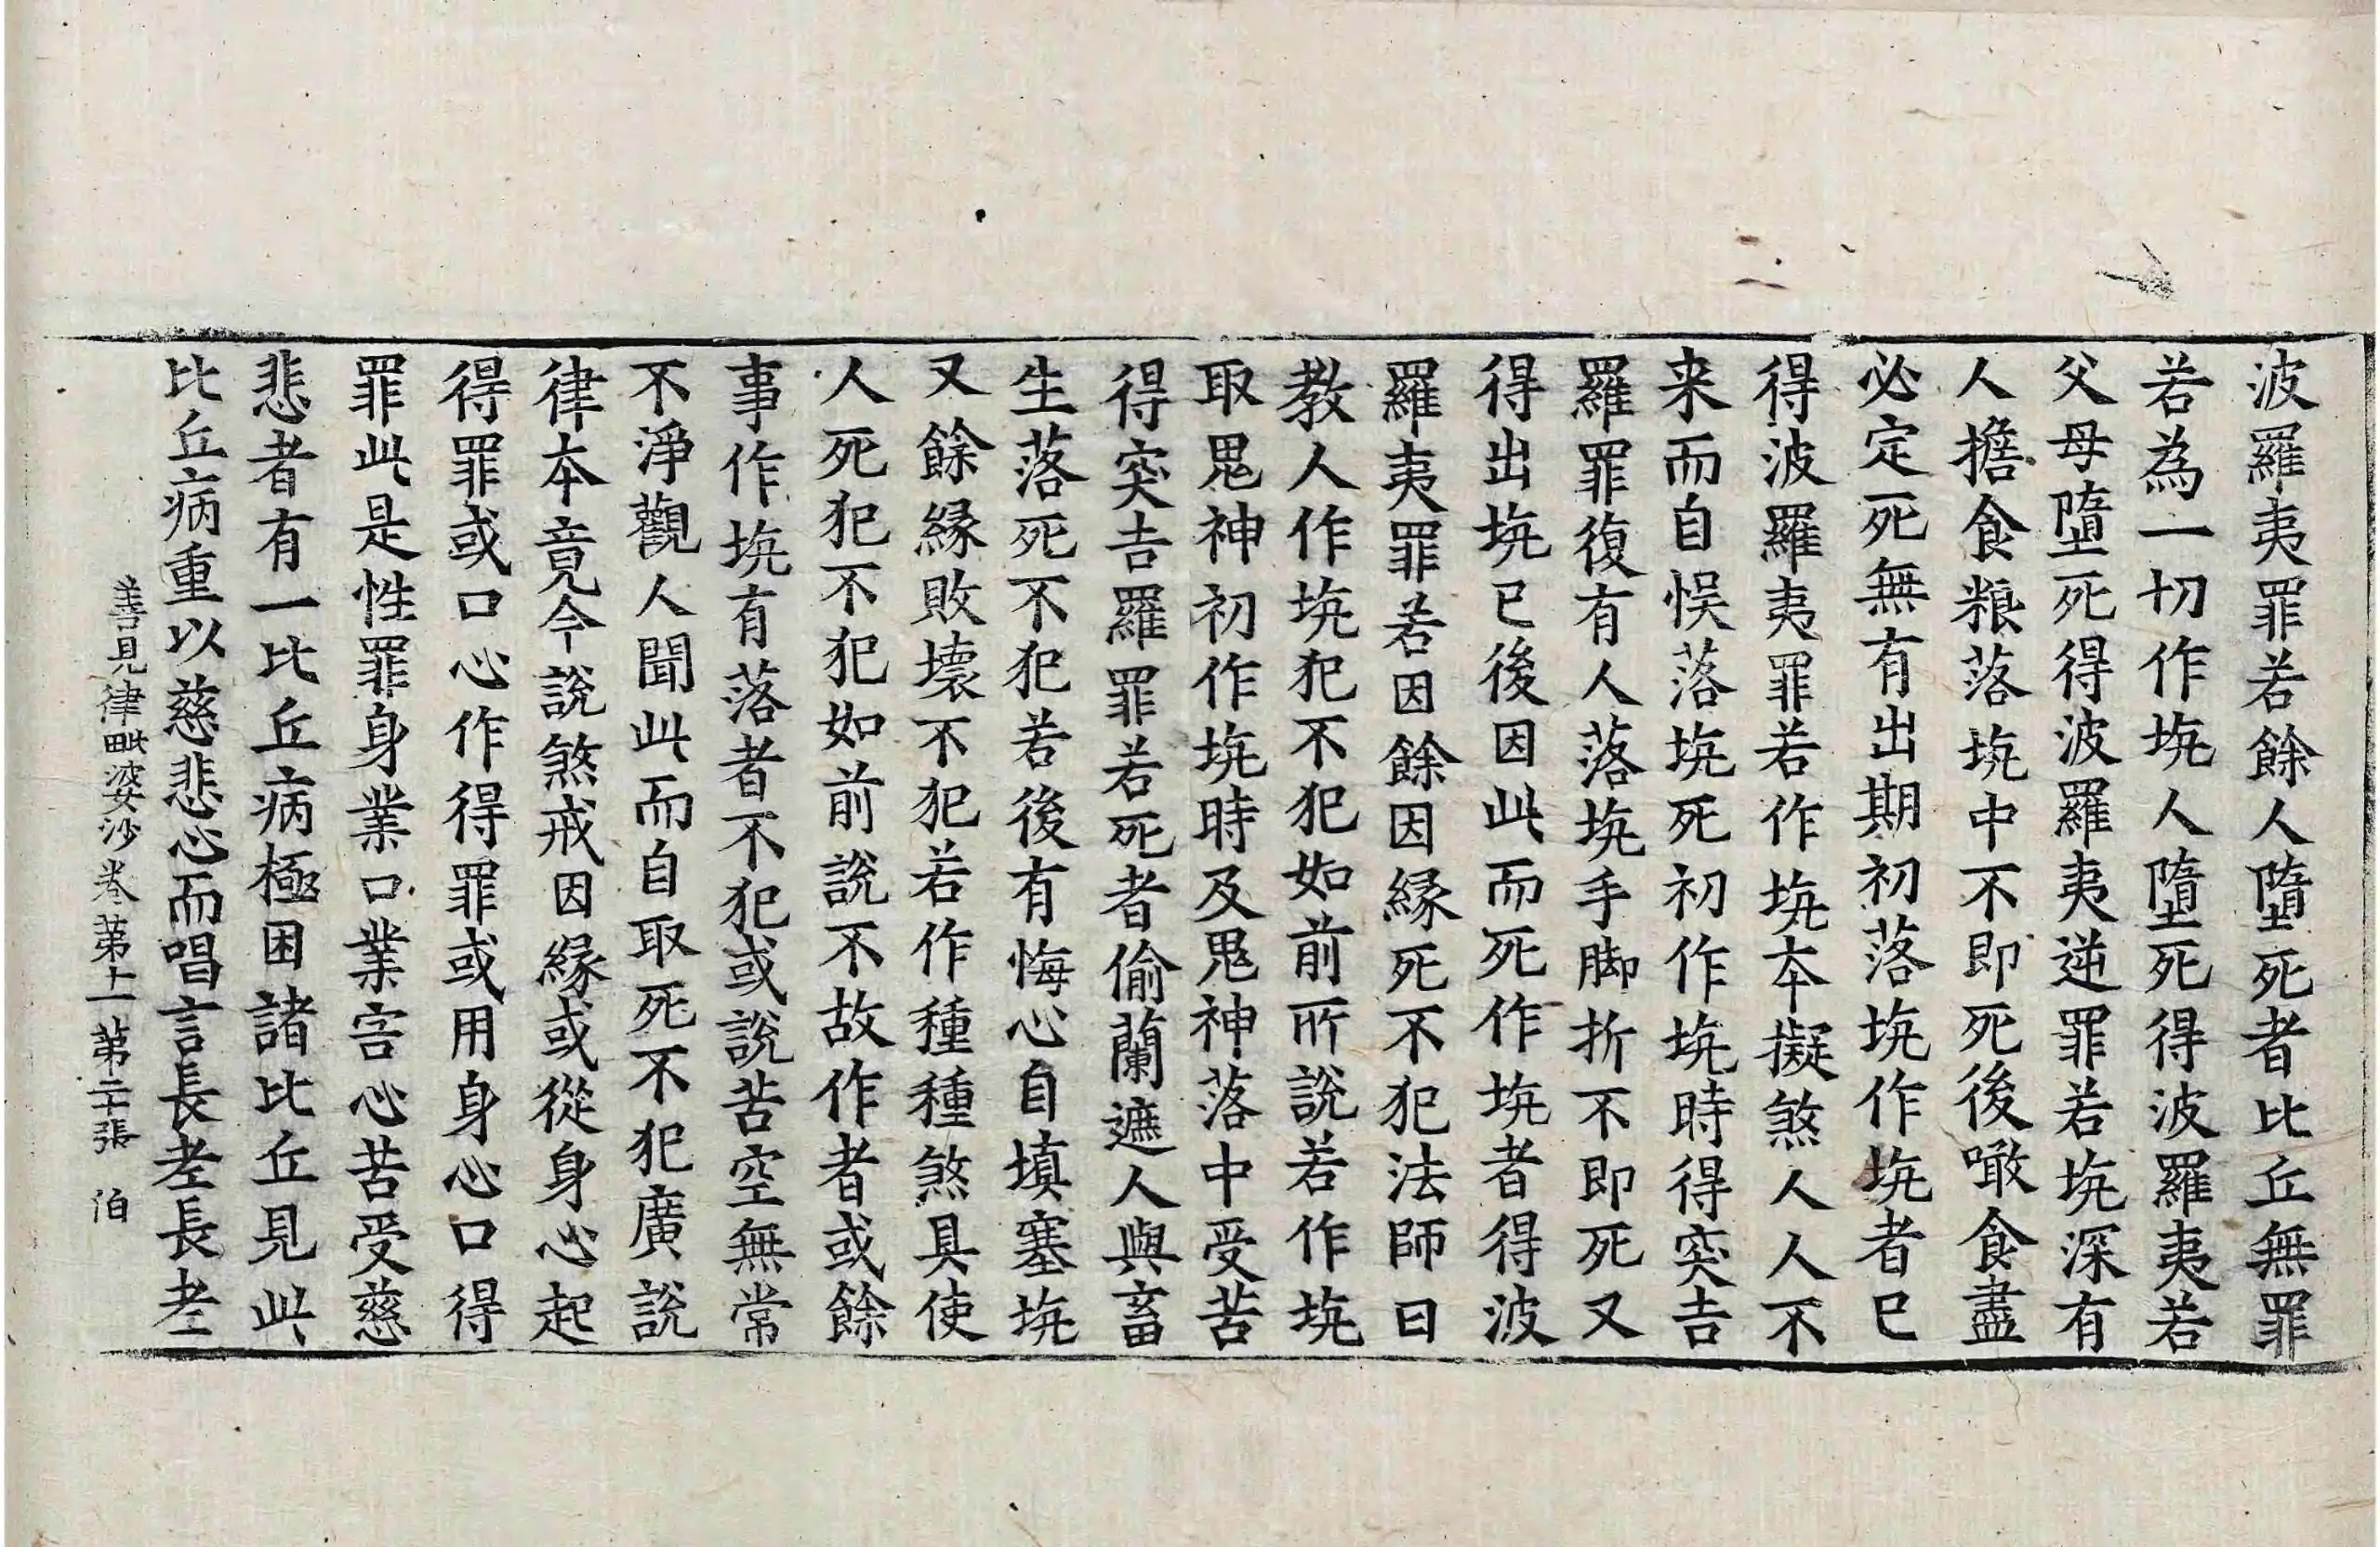 波羅夷罪若餘人墮死者比丘無罪
若為一切作坑人墮死得波羅夷若
父母墮死得波羅夷逆罪若坑深有
人擔食粮落坑中不即死後噉食盡
必定死無有出期初落坑作坑者已
得波羅夷罪若作坑本擬煞人人不
来而自悞落坑死初作坑時得突吉
羅罪復有人落坑手脚折不即死又
得出坑已後因此而死作坑者得波
羅夷罪若因餘因縁死不犯法師曰
教人作坑犯不犯如前所說若作坑
取鬼神初作坑時及鬼神落中受苦
得突吉羅罪若死者偷蘭遮人與畜
生落死不犯若後有悔心自填塞坑
又餘縁敗壞不犯若作種種煞具使
人死犯不犯如前說不故作者或餘
事作坑有落者不犯或說苦空無常
不淨觀人聞此而自取死不犯廣說
律本竟今說煞戒因緣或從身心起
得罪或口心作得罪或用身心口得
罪此是性罪身業口業害心苦受慈
悲者有一比丘病極困諸比丘見此
比丘病重以慈悲心而唱言長老長老
善見律毗婆沙卷第十一 第二十張 伯